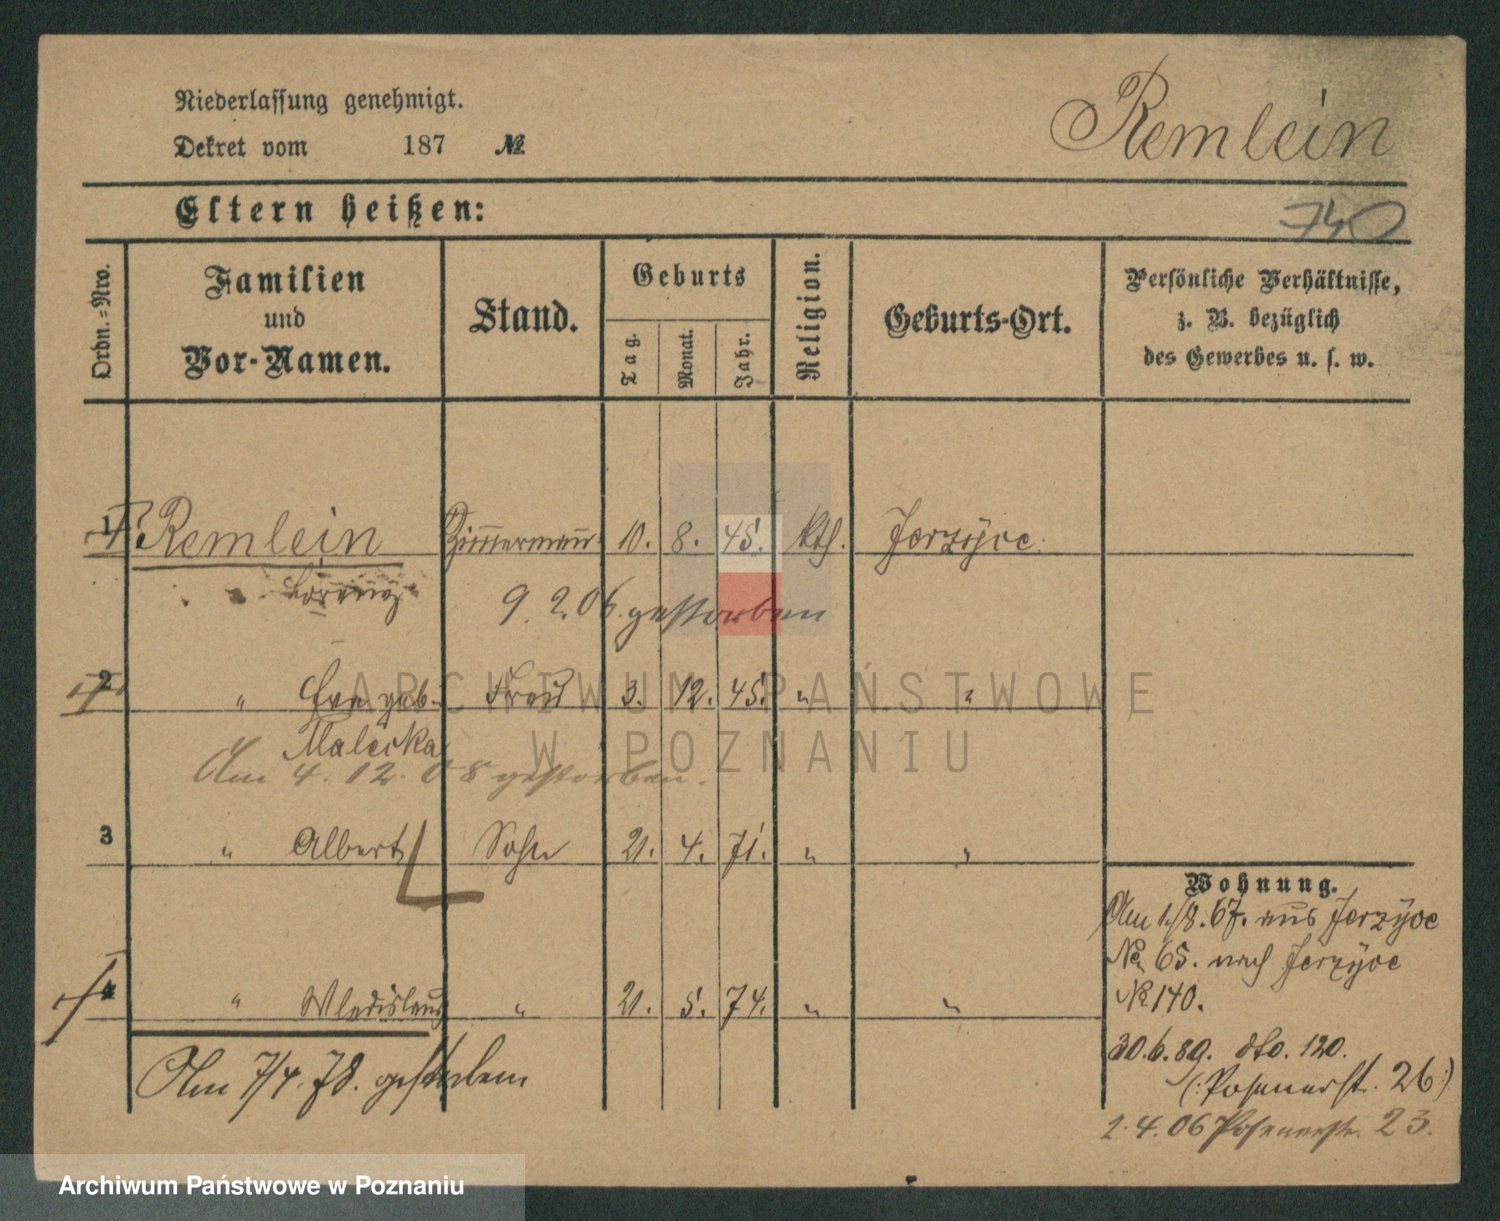 Niederlassung genehmigt.
Dekret vom 187 №
Remlein
Eltern heißen:
740
Ordn.-Nro.
Familien
und
Vor-Namen.
Stand.
Geburts
Tag.
Monat.
Jahr.
Religion.
Geburts-Ort.
Persönliche Verhältnisse,
z. B. bezüglich
des Gewerbes u. s. w.
1 Remlein Zimmermann 10. 8. 45. Kth. Jerzyce
Lorenz
9. 2. 06. gestorben
2 " Eva geb. Frau 3. 12. 45. " "
Malecka
Am 4. 12. 08 gestorben.
3 " Albert Sohn 21. 4. 71. " "
4 " Wladislaus " 21. 5. 74. " "
Am 7/4. 78. gestorben
Wohnung.
Am 1./8. 67. aus Jerzyce
№ 65. nach Jerzyce
№ 140.
30. 6. 89. dto. 120.
(: Posenerst. 26 :)
2. 4. 06 Posenerstr. 23.
ARCHIWUM PAŃSTWOWE
W POZNANIU
Archiwum Państwowe w Poznaniu